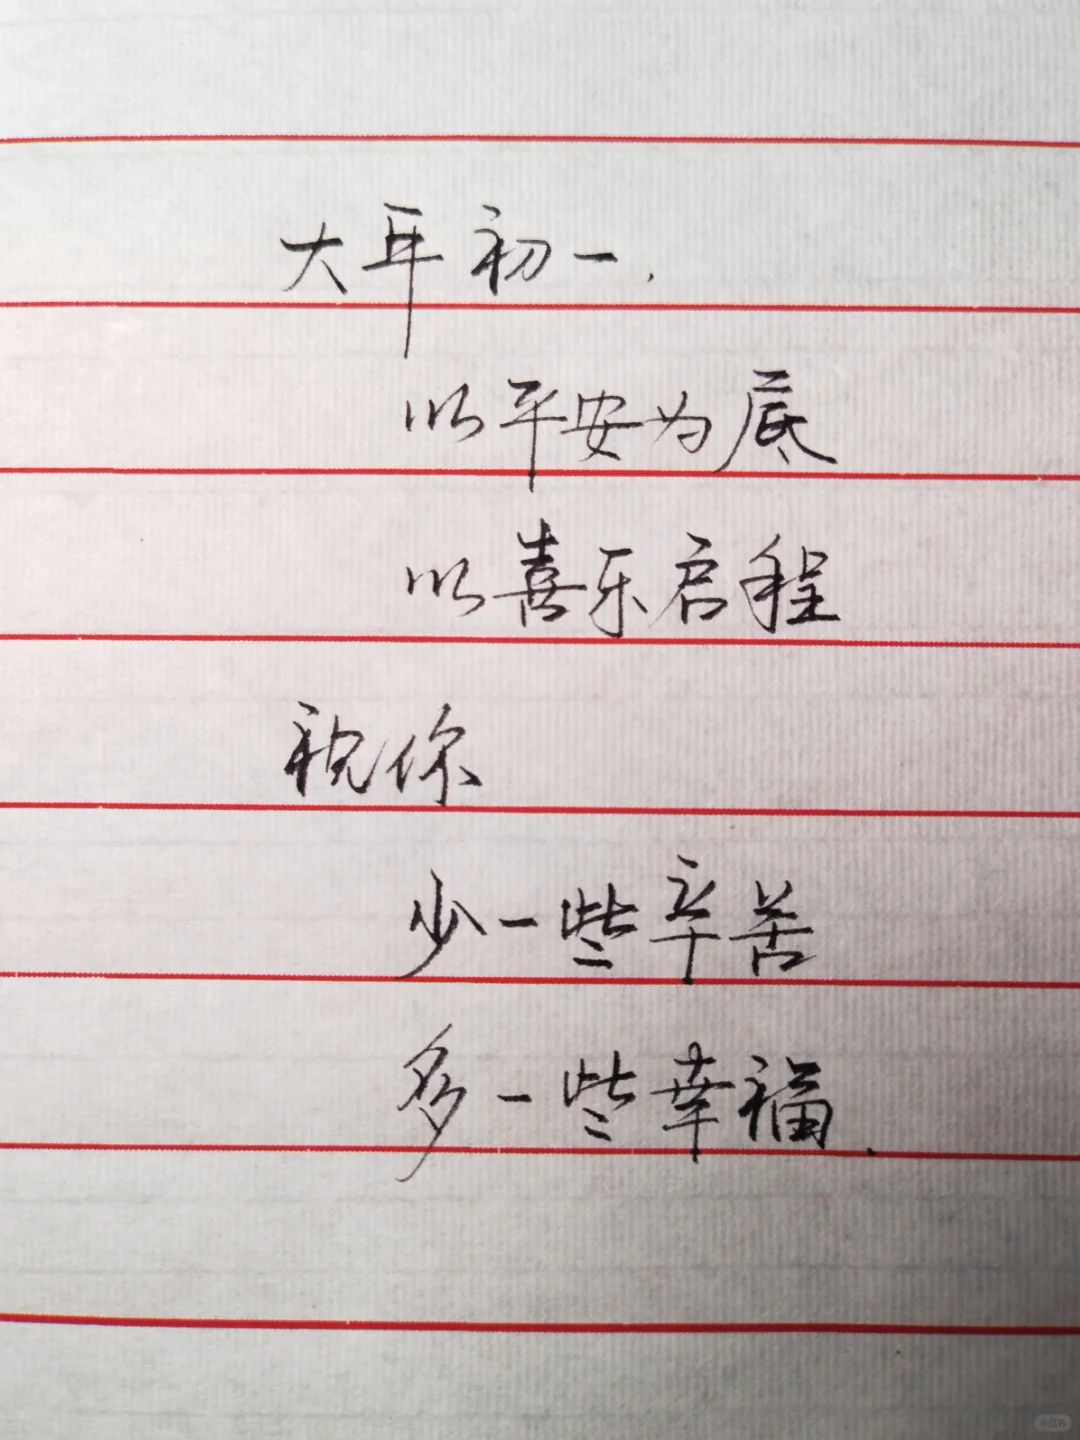 大年初一，
以平安为底
以喜乐启程
祝你
少一些辛苦
多一些幸福.
小红书